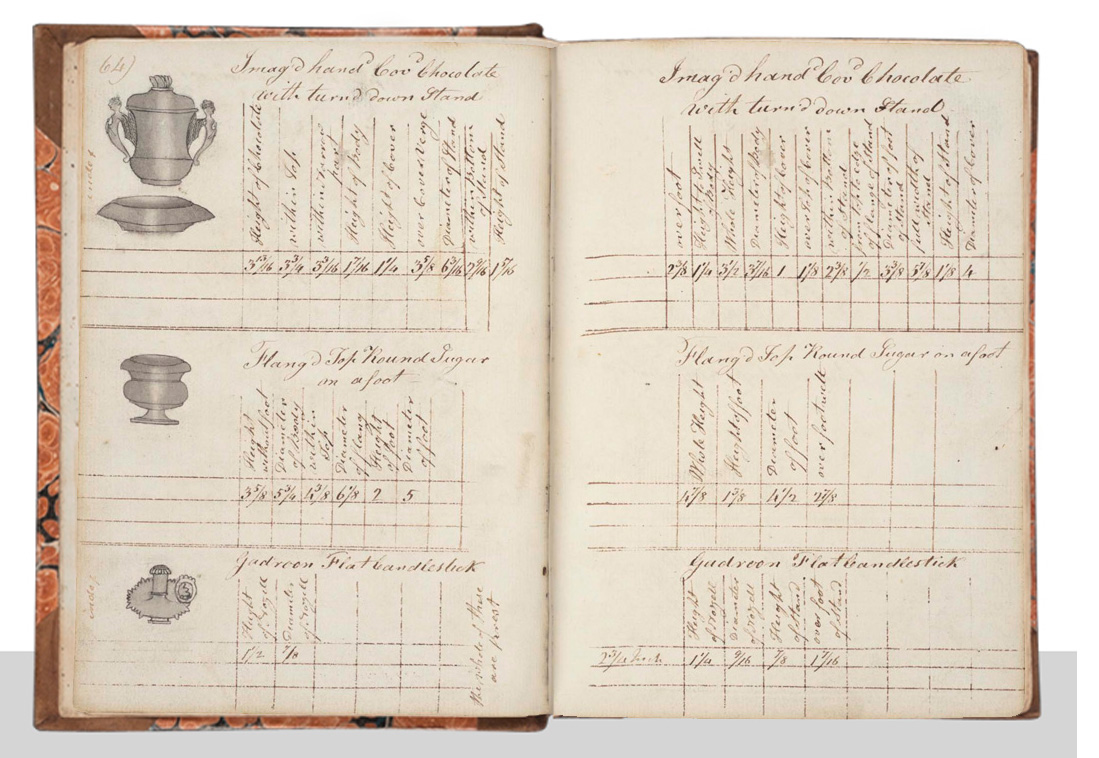 64)
Imag'd hand Cov'd Chocolate
with turn'd down Stand
Height of Chocolate
within top
within narrow part
Height of Body
Height of Cover
over Cover Verge
Diameter of Stand
within Bottom of Stand
Height of Stand
3 3/16 3 3/4 3 5/16 1 7/16 1 1/4 3 5/8 6 5/16 2 9/16 1 5/16
Flang'd Top Round Sugar
on a foot
Heigh without foot
Diameter of Body
within top
Diameter of flang
Height of foot
Diameter of foot
3 5/8 5 3/4 4 3/8 6 1/8 2 5
Gadroon Flat Candlestick
Height of Nozell
Diameter of Nozell
the whole of these are priest
1 1/2 7/8
Imag'd hand Cov'd Chocolate
with turn'd down Stand
over foot
Height to Swell of Body
Whole Height
Diameter of Body
Height of Cover
over top of Cover
within Bottom of Stand
from top to edge of flange of Stand
Diameter of foot of Stand
full width of Stand
Height of Stand
Diameter of Cover
2 3/8 1 1/4 5 1/2 3 7/16 1 1 1/8 2 3/8 1/2 3 3/8 5 5/8 1 1/8 4
Flang'd Top Round Sugar on a foot
Whole Height
Height of foot
Diameter of foot
over foot well
4 7/8 1 5/8 4 1/2 2 7/8
Gadroon Flat Candlestick
Height of Nozell
Diameter of Nozell
Height of Stand
over foot of Stand
1 1/4 9/16 7/8 1 7/16